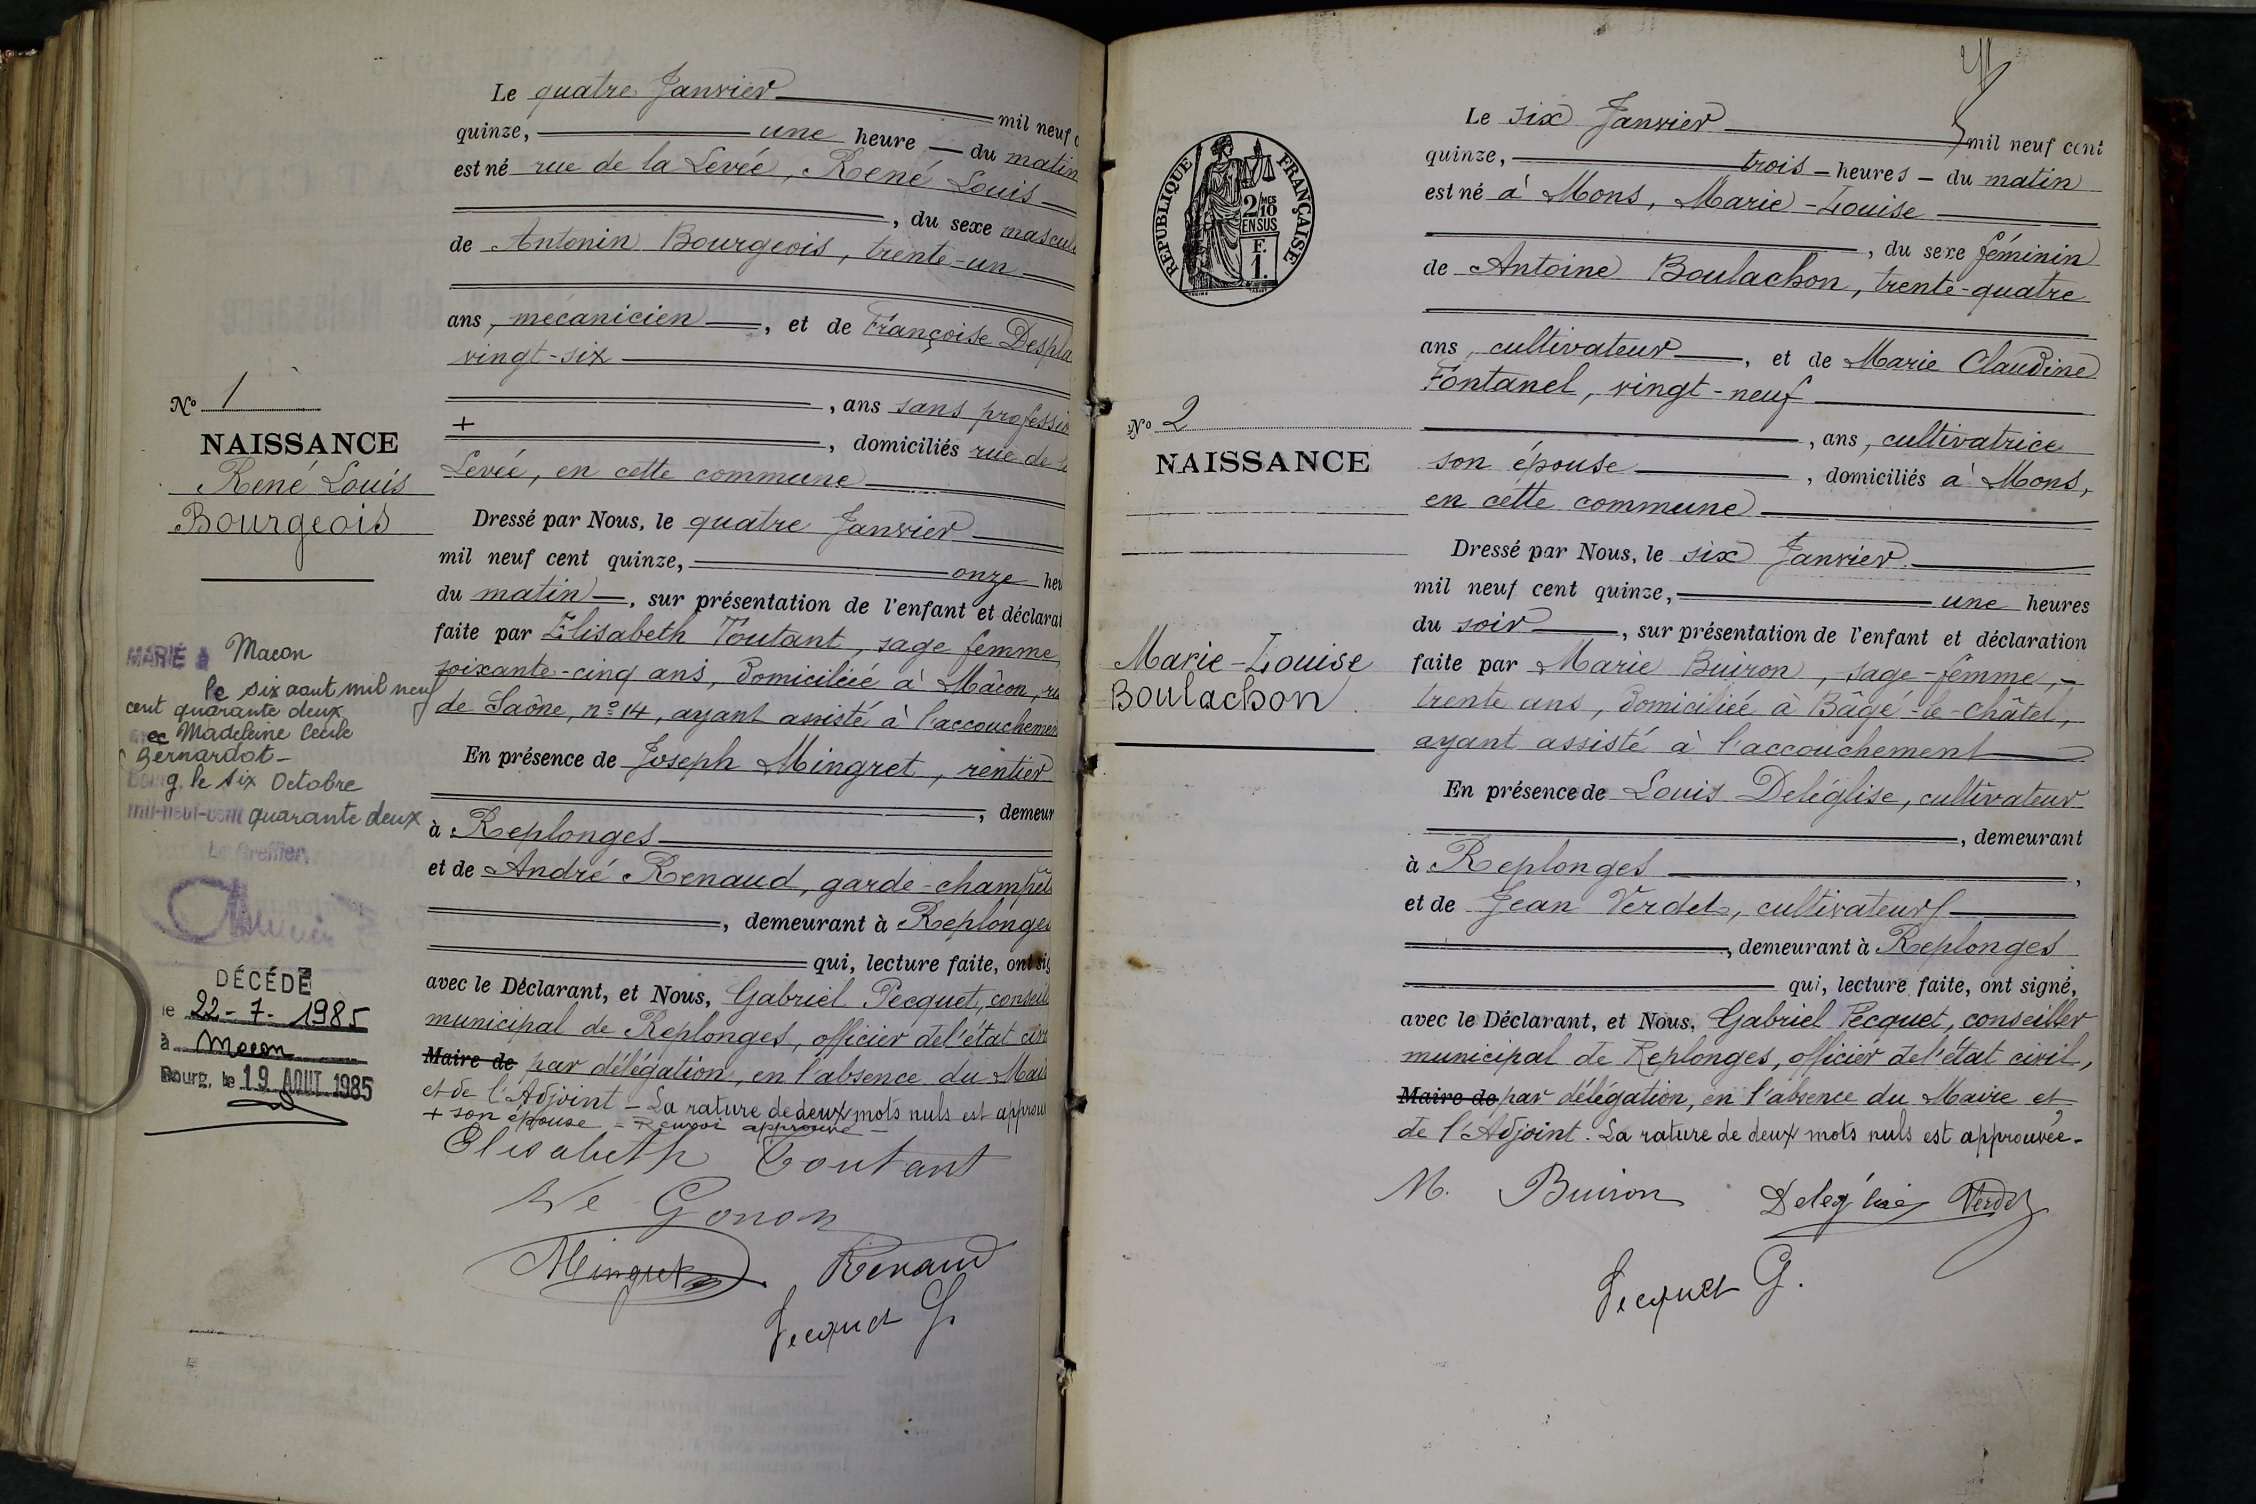 Le quatre Janvier mil neuf c
quinze, une heure du matin
est né rue de la Levée, René Louis
, du sexe mascul
de Antonin Bourgeois, trente-un
ans, mécanicien, et de Françoise Despla
vingt-six
, ans sans professio
+ , domiciliés rue de
Levée, en cette commune
Dressé par Nous, le quatre Janvier
mil neuf cent quinze, onze heu
du matin, sur présentation de l'enfant et déclarat
faite par Elisabeth Toutant, sage femme,
soixante-cinq ans, domiciliée à Mâcon, ru
de Saône, nº 14, ayant assisté à l'accouchemen
En présence de Joseph Mingret, rentier
, demeur
à Replonges
et de André Renaud, garde-champêt
, demeurant à Replonges
qui, lecture faite, ont sig
avec le Déclarant, et Nous, Gabriel Pecquet, conseil
municipal de Replonges, officier de l'état civ
Maire de par délégation, en l'absence du Mair
et de l'Adjoint - La rature de deux mots nuls est approu
+ son épouse = Renvoi approuvé -
Elisabeth Toutant
Ve Gonon
Mingret Renaud
Pecquet G.
Nº 1
NAISSANCE
René Louis
Bourgeois
MARIÉ à Macon
le six aout mil neuf
cent quarante deux
avec Madeleine Cecile
Bernardot -
Bourg, le six Octobre
mil-neuf-cent quarante deux
Le Greffier,
DÉCÉDÉ
le 22-7-1985
à Macon
Bourg, le 19 AOUT 1985
REPUBLIQUE FRANÇAISE
2/10 MES
EN SUS
F.
1.
Nº 2
NAISSANCE
Marie-Louise
Boulachon
Le six Janvier mil neuf cent
quinze, trois heures du matin
est né à Mons, Marie-Louise
, du sexe féminin
de Antoine Boulachon, trente-quatre
ans, cultivateur, et de Marie Claudine
Fontanel, vingt-neuf
, ans, cultivatrice
son épouse, domiciliés à Mons,
en cette commune
Dressé par Nous, le six Janvier
mil neuf cent quinze, une heures
du soir, sur présentation de l'enfant et déclaration
faite par Marie Buiron, sage-femme,
trente ans, domiciliée à Bâgé-le-châtel,
ayant assisté à l'accouchement
En présence de Louis Deléglise, cultivateur
, demeurant
à Replonges,
et de Jean Verdet, cultivateur
, demeurant à Replonges
qui, lecture faite, ont signé,
avec le Déclarant, et Nous, Gabriel Pecquet, conseiller
municipal de Replonges, officier de l'état civil,
Maire de par délégation, en l'absence du Maire et
de l'Adjoint. La rature de deux mots nuls est approuvée.
M. Buiron Deléglise Verdet
Pecquet G.